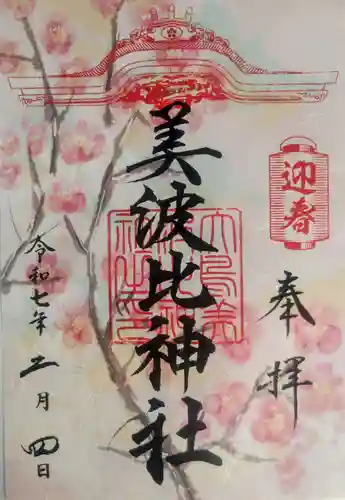 迎春
奉拝
美波比神社
令和七年二月四日